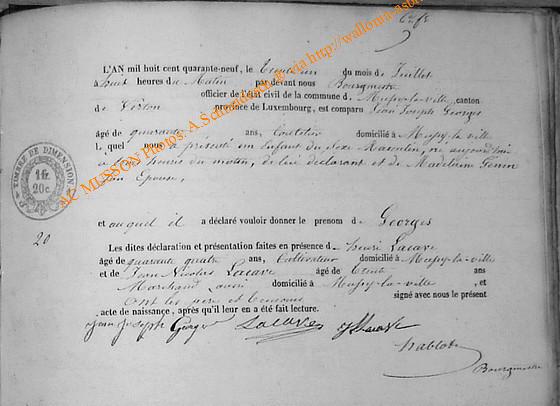 L'AN mil huit cent quarante-neuf, le Trente un du mois de Juillet
à huit heures du Matin, par devant nous Bourgmestre
officier de l'état civil de la commune de Mussy-la-ville, canton
de Virton province de Luxembourg, est comparu Jean Joseph Georges
âgé de quarante ans, domicilié à Mussy la ville
L quel nous a présenté un Enfant du Sexe Masculin, né aujourd'hui
à heures du matin, de lui déclarant et de Madelaine
Son Epouse,
et auquel il a déclaré vouloir donner le prenom de Georges
20
Les dites déclaration et présentation faites en présence de henri Lacave
âgé de quarante quatre ans, Cultivateur domicilié à Mussy-la-ville
et de Jean Nicolas Lacave âgé de Trente ans
Marchand aussi domicilié à Mussy-la-ville, et
Ont les père et temoins signé avec nous le présent
acte de naissance, après qu'il leur en a été fait lecture.
Jean Joseph Georges Lacave
Bourgmestre
TIMBRE DE DIMENSION
1 fr.
20 c.
AC MUSSON Photos: A Schmidbach &
via http://wallonia-asbl